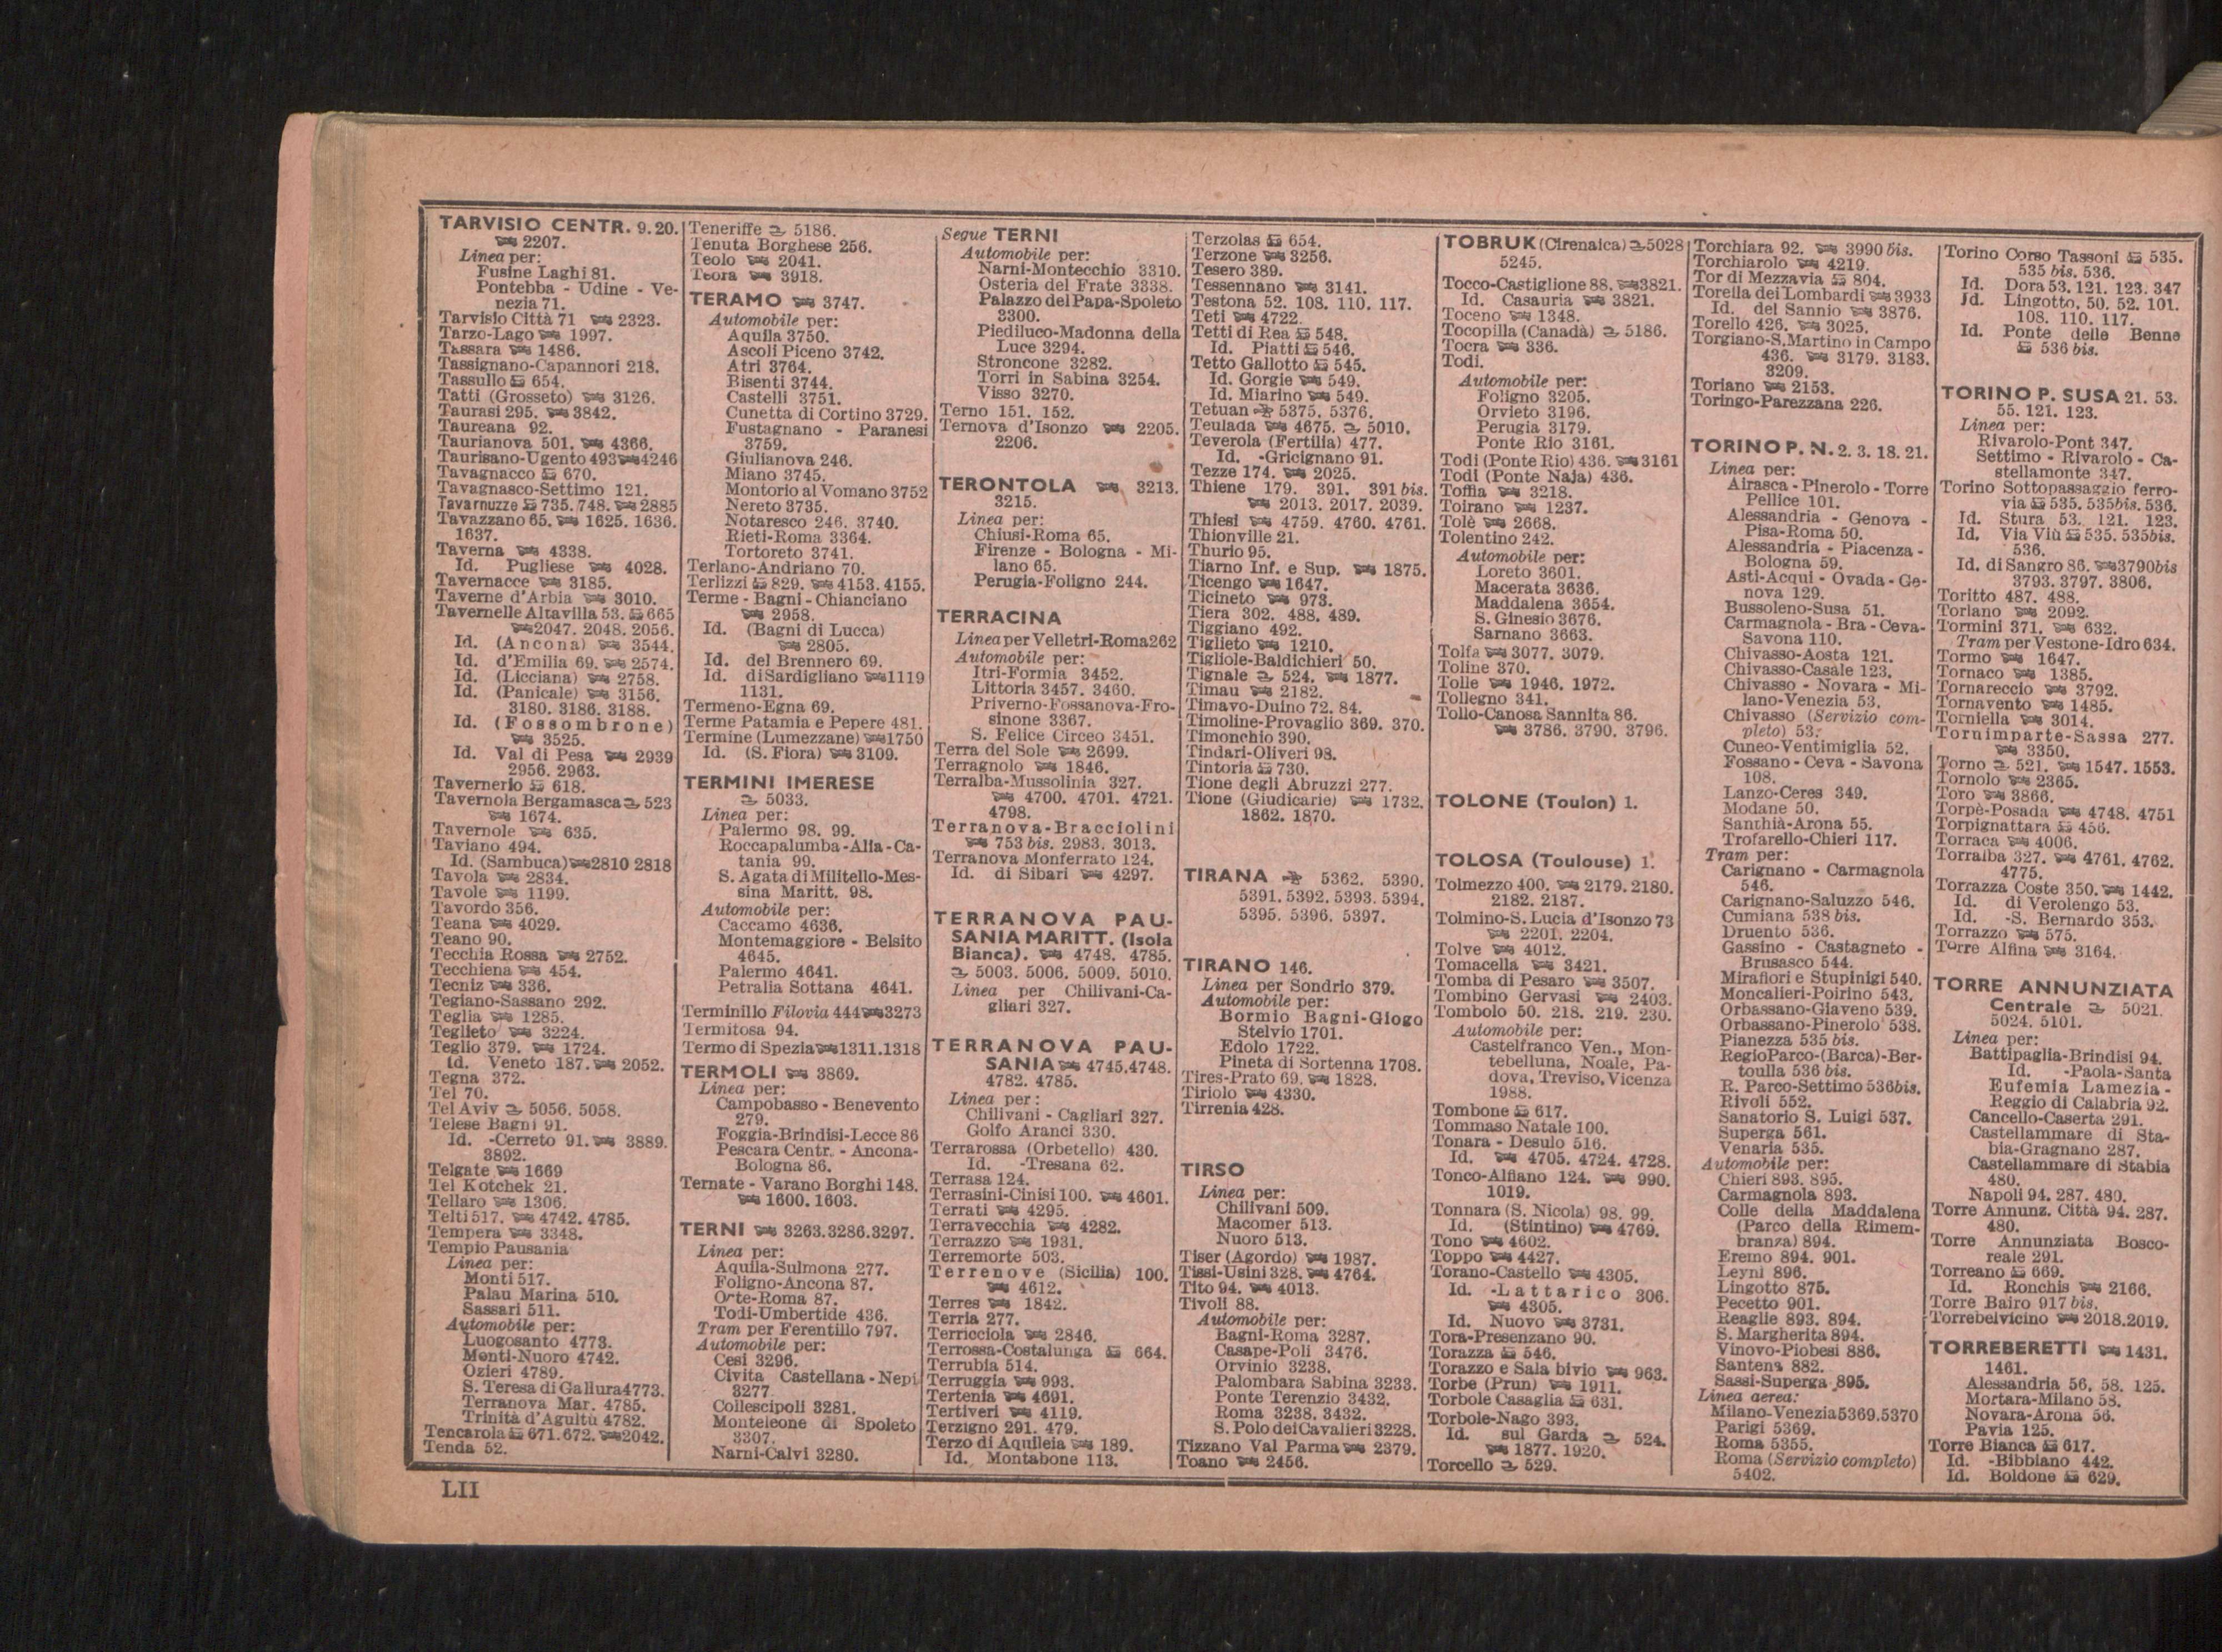 TARVISIO CENTR. 9. 20.
2207.
Linea per:
Fusine Laghi 81.
Pontebba - Udine - Ve-
nezia 71.
Tarvisio Città 71 2323.
Tarzo-Lago 1997.
Tassara 1486.
Tassignano-Capannori 218.
Tassullo 654.
Tatti (Grosseto) 3126.
Taurasi 295. 3842.
Taureana 92.
Taurianova 501. 4366.
Taurisano-Ugento 493 4246
Tavagnacco 670.
Tavagnasco-Settimo 121.
Tavarnuzze 735. 748. 2885
Tavazzano 65. 1625. 1636.
1637.
Taverna 4338.
Id. Pugliese 4028.
Tavernacce 3185.
Taverne d'Arbia 3010.
Tavernelle Altavilla 53. 665
2047. 2048. 2056.
Id. (Ancona) 3544.
Id. d'Emilia 69. 2574.
Id. (Licciana) 2758.
Id. (Panicale) 3156.
3180. 3186. 3188.
Id. (Fossombrone)
3525.
Id. Val di Pesa 2939
2956. 2963.
Tavernerio 618.
Tavernola Bergamasca 523
1674.
Tavernole 635.
Taviano 494.
Id. (Sambuca) 2810 2818
Tavola 2834.
Tavole 1199.
Tavordo 356.
Teana 4029.
Teano 90.
Tecchia Rossa 2752.
Tecchiena 454.
Tecniz 336.
Tegiano-Sassano 292.
Teglia 1285.
Teglieto 3224.
Teglio 379. 1724.
Id. Veneto 187. 2052.
Tegna 372.
Tel 70.
Tel Aviv 5056. 5058.
Telese Bagni 91.
Id. -Cerreto 91. 3889.
3892.
Telgate 1669
Tel Kotchek 21.
Tellaro 1306.
Telti 517. 4742. 4785.
Tempera 3348.
Tempio Pausania
Linea per:
Monti 517.
Palau Marina 510.
Sassari 511.
Automobile per:
Luogosanto 4773.
Monti-Nuoro 4742.
Ozieri 4789.
S. Teresa di Gallura 4773.
Terranova Mar. 4785.
Trinità d'Agultù 4782.
Tencarola 671. 672. 2042.
Tenda 52.
Teneriffe 5186.
Tenuta Borghese 256.
Teolo 2041.
Teora 3918.
TERAMO 3747.
Automobile per:
Aquila 3750.
Ascoli Piceno 3742.
Atri 3764.
Bisenti 3744.
Castelli 3751.
Cunetta di Cortino 3729.
Fustagnano - Paranesi
3759.
Giulianova 246.
Miano 3745.
Montorio al Vomano 3752
Nereto 3735.
Notaresco 246. 3740.
Rieti-Roma 3364.
Tortoreto 3741.
Terlano-Andriano 70.
Terlizzi 829. 4153. 4155.
Terme - Bagni - Chianciano
2958.
Id. (Bagni di Lucca)
2805.
Id. del Brennero 69.
Id. di Sardigliano 1119
1131.
Termeno-Egna 69.
Terme Patamia e Pepere 481.
Termine (Lumezzane) 1750
Id. (S. Fiora) 3109.
TERMINI IMERESE
5033.
Linea per:
Palermo 98. 99.
Roccapalumba-Alia-Ca-
tania 99.
S. Agata di Militello-Mes-
sina Maritt. 98.
Automobile per:
Caccamo 4636.
Montemaggiore - Belsito
4645.
Palermo 4641.
Petralia Sottana 4641.
Terminillo Filovia 444 3273
Termitosa 94.
Termo di Spezia 1311. 1318
TERMOLI 3869.
Linea per:
Campobasso - Benevento
279.
Foggia-Brindisi-Lecce 86
Pescara Centr. - Ancona-
Bologna 86.
Ternate - Varano Borghi 148.
1600. 1603.
TERNI 3263. 3286. 3297.
Linea per:
Aquila-Sulmona 277.
Foligno-Ancona 87.
Orte-Roma 87.
Todi-Umbertide 436.
Tram per Ferentillo 797.
Automobile per:
Cesi 3296.
Civita Castellana - Nepi
3277.
Collescipoli 3281.
Monteleone di Spoleto
3307.
Narni-Calvi 3280.
Segue TERNI
Automobile per:
Narni-Montecchio 3310.
Osteria del Frate 3338.
Palazzo del Papa-Spoleto
3300.
Piediluco-Madonna della
Luce 3294.
Stroncone 3282.
Torri in Sabina 3254.
Visso 3270.
Terno 151. 152.
Ternova d'Isonzo 2205.
2206.
TERONTOLA 3213.
3215.
Linea per:
Chiusi-Roma 65.
Firenze - Bologna - Mi-
lano 65.
Perugia-Foligno 244.
TERRACINA
Linea per Velletri-Roma 262
Automobile per:
Itri-Formia 3452.
Littoria 3457. 3460.
Priverno-Fossanova-Fro-
sinone 3367.
S. Felice Circeo 3451.
Terra del Sole 2699.
Terragnolo 1846.
Terralba-Mussolinia 327.
4700. 4701. 4721.
4798.
Terranova-Bracciolini
753 bis. 2983. 3013.
Terranova Monferrato 124.
Id. di Sibari 4297.
TERRANOVA PAU-
SANIA MARITT. (Isola
Bianca). 4748. 4785.
5003. 5006. 5009. 5010.
Linea per Chilivani-Ca-
gliari 327.
TERRANOVA PAU-
SANIA 4745. 4748.
4782. 4785.
Linea per:
Chilivani - Cagliari 327.
Golfo Aranci 330.
Terrarossa (Orbetello) 430.
Id. -Tresana 62.
Terrasa 124.
Terrasini-Cinisi 100. 4601.
Terrati 4295.
Terravecchia 4282.
Terrazzo 1931.
Terremorte 503.
Terrenove (Sicilia) 100.
4612.
Terres 1842.
Terria 277.
Terricciola 2846.
Terrossa-Costalunga 664.
Terrubia 514.
Terruggia 993.
Tertenia 4691.
Tertiveri 4119.
Terzigno 291. 479.
Terzo di Aquileia 189.
Id. Montabone 113.
Terzolas 654.
Terzone 3256.
Tesero 389.
Tessennano 3141.
Testona 52. 108. 110. 117.
Teti 4722.
Tetti di Rea 548.
Id. Piatti 546.
Tetto Gallotto 545.
Id. Gorgie 549.
Id. Miarino 549.
Tetuan 5375. 5376.
Teulada 4675. 5010.
Teverola (Fertilia) 477.
Id. -Gricignano 91.
Tezze 174. 2025.
Thiene 179. 391. 391 bis.
2013. 2017. 2039.
Thiesi 4759. 4760. 4761.
Thionville 21.
Thurio 95.
Tiarno Inf. e Sup. 1875.
Ticengo 1647.
Ticineto 973.
Tiera 302. 488. 489.
Tiggiano 492.
Tiglieto 1210.
Tigliole-Baldichieri 50.
Tignale 524. 1877.
Timau 2182.
Timavo-Duino 72. 84.
Timoline-Provaglio 369. 370.
Timonchio 390.
Tindari-Oliveri 98.
Tintoria 730.
Tione degli Abruzzi 277.
Tione (Giudicarie) 1732.
1862. 1870.
TIRANA 5362. 5390.
5391. 5392. 5393. 5394.
5395. 5396. 5397.
TIRANO 146.
Linea per Sondrio 379.
Automobile per:
Bormio Bagni-Giogo
Stelvio 1701.
Edolo 1722.
Pineta di Sortenna 1708.
Tires-Prato 69. 1828.
Tiriolo 4330.
Tirrenia 428.
TIRSO
Linea per:
Chilivani 509.
Macomer 513.
Nuoro 513.
Tiser (Agordo) 1987.
Tissi-Usini 328. 4764.
Tito 94. 4013.
Tivoli 88.
Automobile per:
Bagni-Roma 3287.
Casape-Poli 3476.
Orvinio 3238.
Palombara Sabina 3233.
Ponte Terenzio 3432.
Roma 3238. 3432.
S. Polo dei Cavalieri 3228.
Tizzano Val Parma 2379.
Toano 2456.
TOBRUK (Cirenaica) 5028
5245.
Tocco-Castiglione 88. 3821.
Id. Casauria 3821.
Toceno 1348.
Tocopilla (Canadà) 5186.
Tocra 336.
Todi.
Automobile per:
Foligno 3205.
Orvieto 3196.
Perugia 3179.
Ponte Rio 3161.
Todi (Ponte Rio) 436. 3161
Todi (Ponte Naja) 436.
Toffia 3218.
Toirano 1237.
Tolè 2668.
Tolentino 242.
Automobile per:
Loreto 3601.
Macerata 3636.
Maddalena 3654.
S. Ginesio 3676.
Sarnano 3663.
Tolfa 3077. 3079.
Toline 370.
Tolle 1946. 1972.
Tollegno 341.
Tollo-Canosa Sannita 86.
3786. 3790. 3796.
TOLONE (Toulon) 1.
TOLOSA (Toulouse) 1.
Tolmezzo 400. 2179. 2180.
2182. 2187.
Tolmino-S. Lucia d'Isonzo 73
2201. 2204.
Tolve 4012.
Tomacella 3421.
Tomba di Pesaro 3507.
Tombino Gervasi 2403.
Tombolo 50. 218. 219. 230.
Automobile per:
Castelfranco Ven., Mon-
tebelluna, Noale, Pa-
dova, Treviso, Vicenza
1988.
Tombone 617.
Tommaso Natale 100.
Tonara - Desulo 516.
Id. 4705. 4724. 4728.
Tonco-Alfiano 124. 990.
1019.
Tonnara (S. Nicola) 98. 99.
Id. (Stintino) 4769.
Tono 4602.
Toppo 4427.
Torano-Castello 4305.
Id. -Lattarico 306.
4305.
Id. Nuovo 3731.
Tora-Presenzano 90.
Torazza 546.
Torazzo e Sala bivio 963.
Torbe (Prun) 1911.
Torbole Casaglia 631.
Torbole-Nago 393.
Id. sul Garda 524.
1877. 1920.
Torcello 529.
Torchiara 92. 3990 bis.
Torchiarolo 4219.
Tor di Mezzavia 804.
Torella dei Lombardi 3933
Id. del Sannio 3876.
Torello 426. 3025.
Torgiano-S. Martino in Campo
436. 3179. 3183.
3209.
Toriano 2153.
Toringo-Parezzana 226.
TORINO P. N. 2. 3. 18. 21.
Linea per:
Airasca - Pinerolo - Torre
Pellice 101.
Alessandria - Genova -
Pisa-Roma 50.
Alessandria - Piacenza -
Bologna 59.
Asti-Acqui - Ovada - Ge-
nova 129.
Bussoleno-Susa 51.
Carmagnola - Bra - Ceva-
Savona 110.
Chivasso-Aosta 121.
Chivasso-Casale 123.
Chivasso - Novara - Mi-
lano-Venezia 53.
Chivasso (Servizio com-
pleto) 53.
Cuneo-Ventimiglia 52.
Fossano - Ceva - Savona
108.
Lanzo-Ceres 349.
Modane 50.
Santhià-Arona 55.
Trofarello-Chieri 117.
Tram per:
Carignano - Carmagnola
546.
Carignano-Saluzzo 546.
Cumiana 538 bis.
Druento 536.
Gassino - Castagneto -
Brusasco 544.
Mirafiori e Stupinigi 540.
Moncalieri-Poirino 543.
Orbassano-Giaveno 539.
Orbassano-Pinerolo 538.
Pianezza 535 bis.
Regio Parco-(Barca)-Ber-
toulla 536 bis.
R. Parco-Settimo 536bis.
Rivoli 552.
Sanatorio S. Luigi 537.
Superga 561.
Venaria 535.
Automobile per:
Chieri 893. 895.
Carmagnola 893.
Colle della Maddalena
(Parco della Rimem-
branza) 894.
Eremo 894. 901.
Leynì 896.
Lingotto 875.
Pecetto 901.
Reaglie 893. 894.
S. Margherita 894.
Vinovo-Piobesi 886.
Santena 882.
Sassi-Superga 895.
Linea aerea:
Milano-Venezia 5369. 5370
Parigi 5369.
Roma 5355.
Roma (Servizio completo)
5402.
Torino Corso Tassoni 535.
535 bis. 536.
Id. Dora 53. 121. 123. 347
Id. Lingotto. 50. 52. 101.
108. 110. 117.
Id. Ponte delle Benne
536 bis.
TORINO P. SUSA 21. 53.
55. 121. 123.
Linea per:
Rivarolo-Pont 347.
Settimo - Rivarolo - Ca-
stellamonte 347.
Torino Sottopassaggio ferro-
via 535. 535bis. 536.
Id. Stura 53. 121. 123.
Id. Via Viù 535. 535bis.
536.
Id. di Sangro 86. 3790bis
3793. 3797. 3806.
Toritto 487. 488.
Torlano 2092.
Tormini 371. 632.
Tram per Vestone-Idro 634.
Tormo 1647.
Tornaco 1385.
Tornareccio 3792.
Tornavento 1485.
Torniella 3014.
Tornimparte-Sassa 277.
3350.
Torno 521. 1547. 1553.
Tornolo 2365.
Toro 3866.
Torpè-Posada 4748. 4751
Torpignattara 456.
Torraca 4006.
Torralba 327. 4761. 4762.
4775.
Torrazza Coste 350. 1442.
Id. di Verolengo 53.
Id. -S. Bernardo 353.
Torrazzo 575.
Torre Alfina 3164.
TORRE ANNUNZIATA
Centrale 5021.
5024. 5101.
Linea per:
Battipaglia-Brindisi 94.
Id. -Paola-Santa
Eufemia Lamezia -
Reggio di Calabria 92.
Cancello-Caserta 291.
Castellammare di Sta-
bia-Gragnano 287.
Castellammare di Stabia
480.
Napoli 94. 287. 480.
Torre Annunz. Città 94. 287.
480.
Torre Annunziata Bosco-
reale 291.
Torreano 669.
Id. Ronchis 2166.
Torre Bairo 917 bis.
Torrebelvicino 2018. 2019.
TORREBERETTI 1431.
1461.
Alessandria 56. 58. 125.
Mortara-Milano 58.
Novara-Arona 56.
Pavia 125.
Torre Bianca 617.
Id. -Bibbiano 442.
Id. Boldone 629.
LII